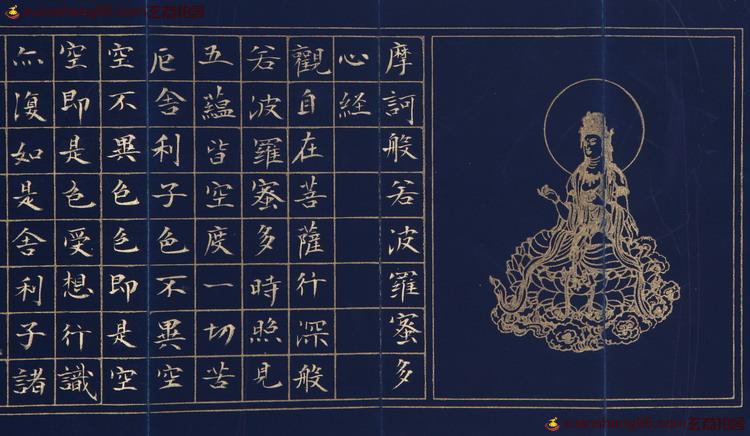 摩訶般若波羅蜜多
心経
觀自在菩薩行深般
若波羅蜜多時照見
五蘊皆空度一切苦
厄舍利子色不異空
空不異色色即是空
空即是色受想行識
亦復如是舍利子諸